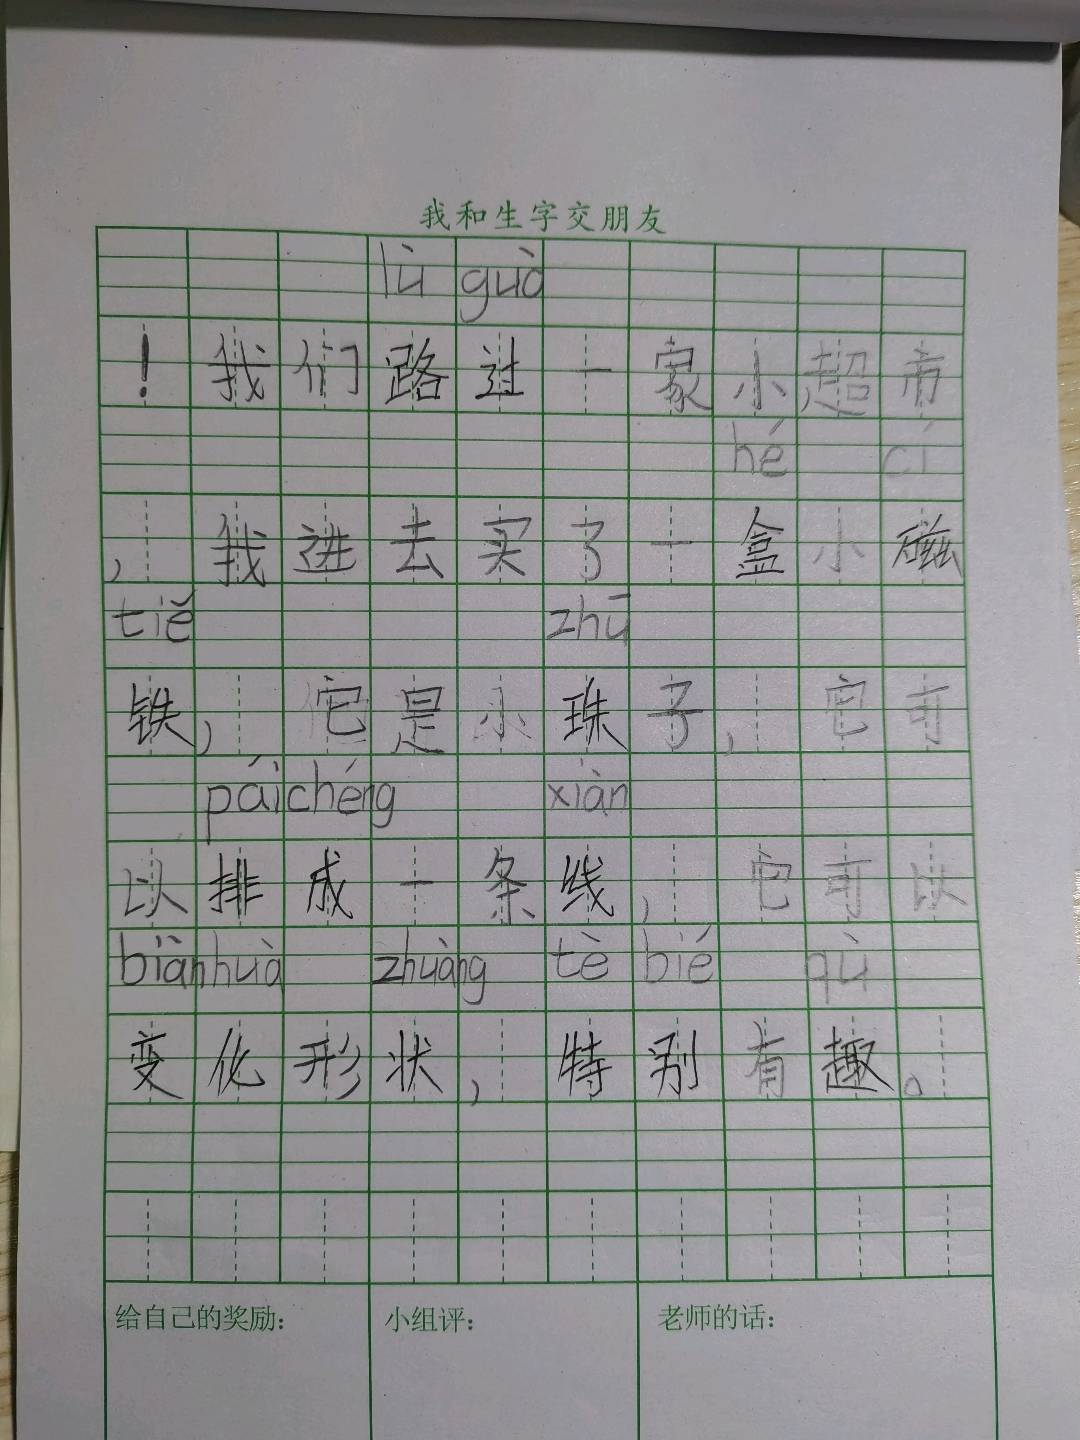 我和生字交朋友
lù guò
！我们路过一家小超市
hé cí
，我进去买了一盒小磁
tiě zhū
铁，它是小珠子，它可
pái chéng xiàn
以排成一条线，它可以
biàn huà zhuàng tè bié qù
变化形状，特别有趣。
给自己的奖励： 小组评： 老师的话：